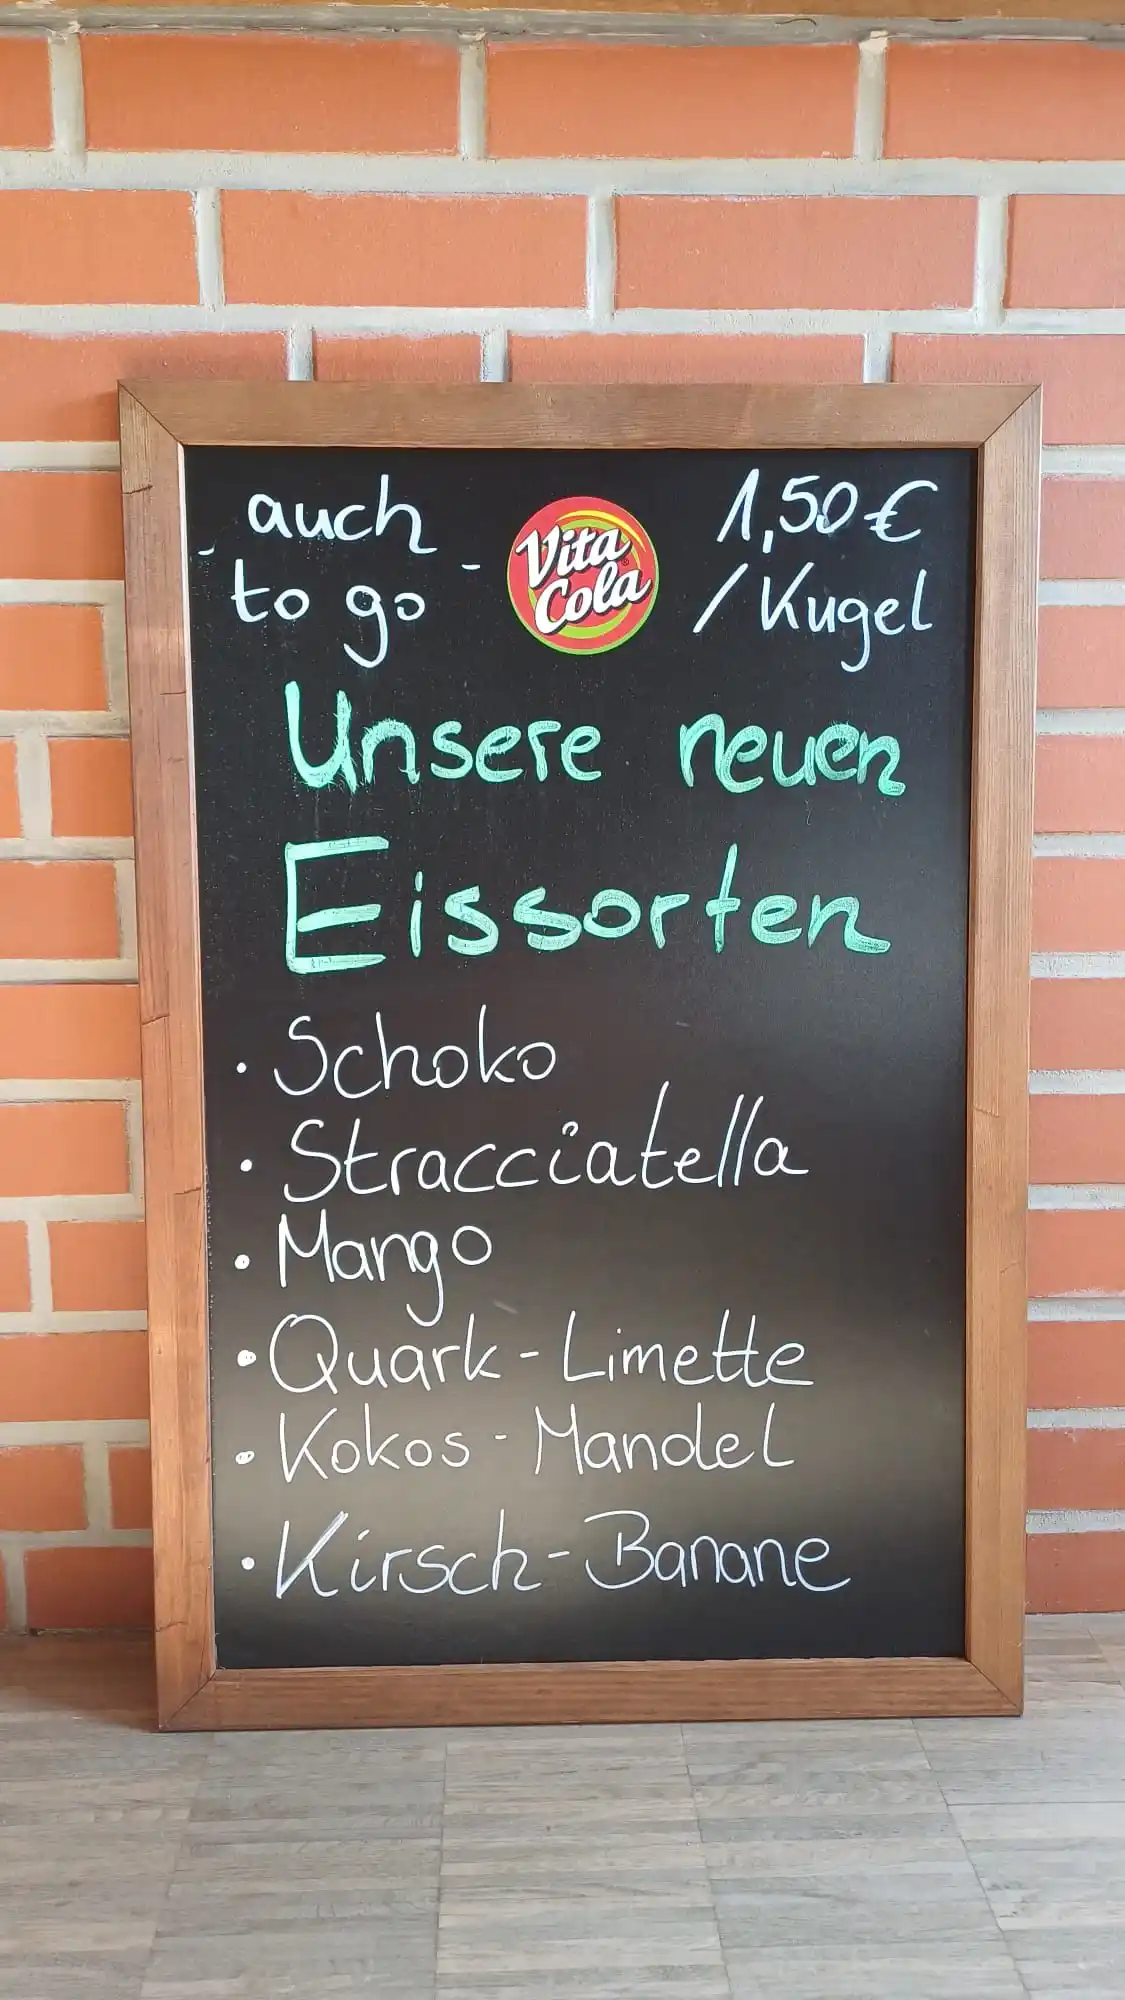 auch
- to go -
Vita
Cola
1,50 €
/ Kugel
Unsere neuen
Eissorten
• Schoko
• Stracciatella
• Mango
• Quark - Limette
• Kokos - Mandel
• Kirsch - Banane